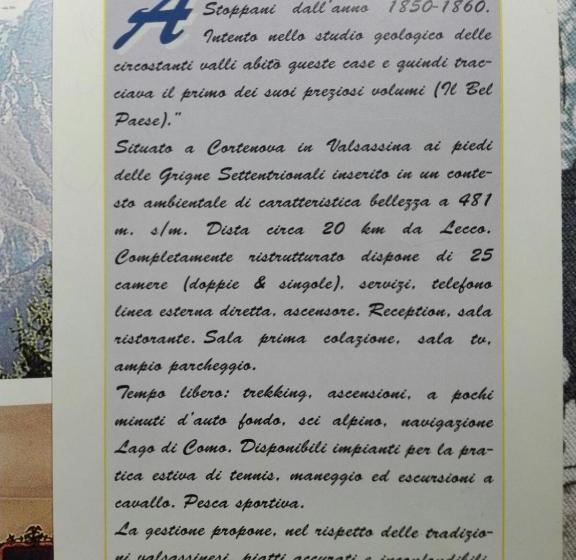 A Stoppani dall'anno 1850-1860.
Intento nello studio geologico delle
circostanti valli abitò queste case e quindi trac-
ciava il primo dei suoi preziosi volumi (Il Bel
Paese)."
Situato a Cortenova in Valsassina ai piedi
delle Grigne Settentrionali inserito in un conte-
sto ambientale di caratteristica bellezza a 481
m. s/m. Dista circa 20 km da Lecco.
Completamente ristrutturato dispone di 25
camere (doppie & singole), servizi, telefono
linea esterna diretta, ascensore. Reception, sala
ristorante. Sala prima colazione, sala tv,
ampio parcheggio.
Tempo libero: trekking, ascensioni, a pochi
minuti d'auto fondo, sci alpino, navigazione
Lago di Como. Disponibili impianti per la pra-
tica estiva di tennis, maneggio ed escursioni a
cavallo. Pesca sportiva.
La gestione propone, nel rispetto delle tradizio-
ni valsassinesi, piatti accurati e inconfondibili,